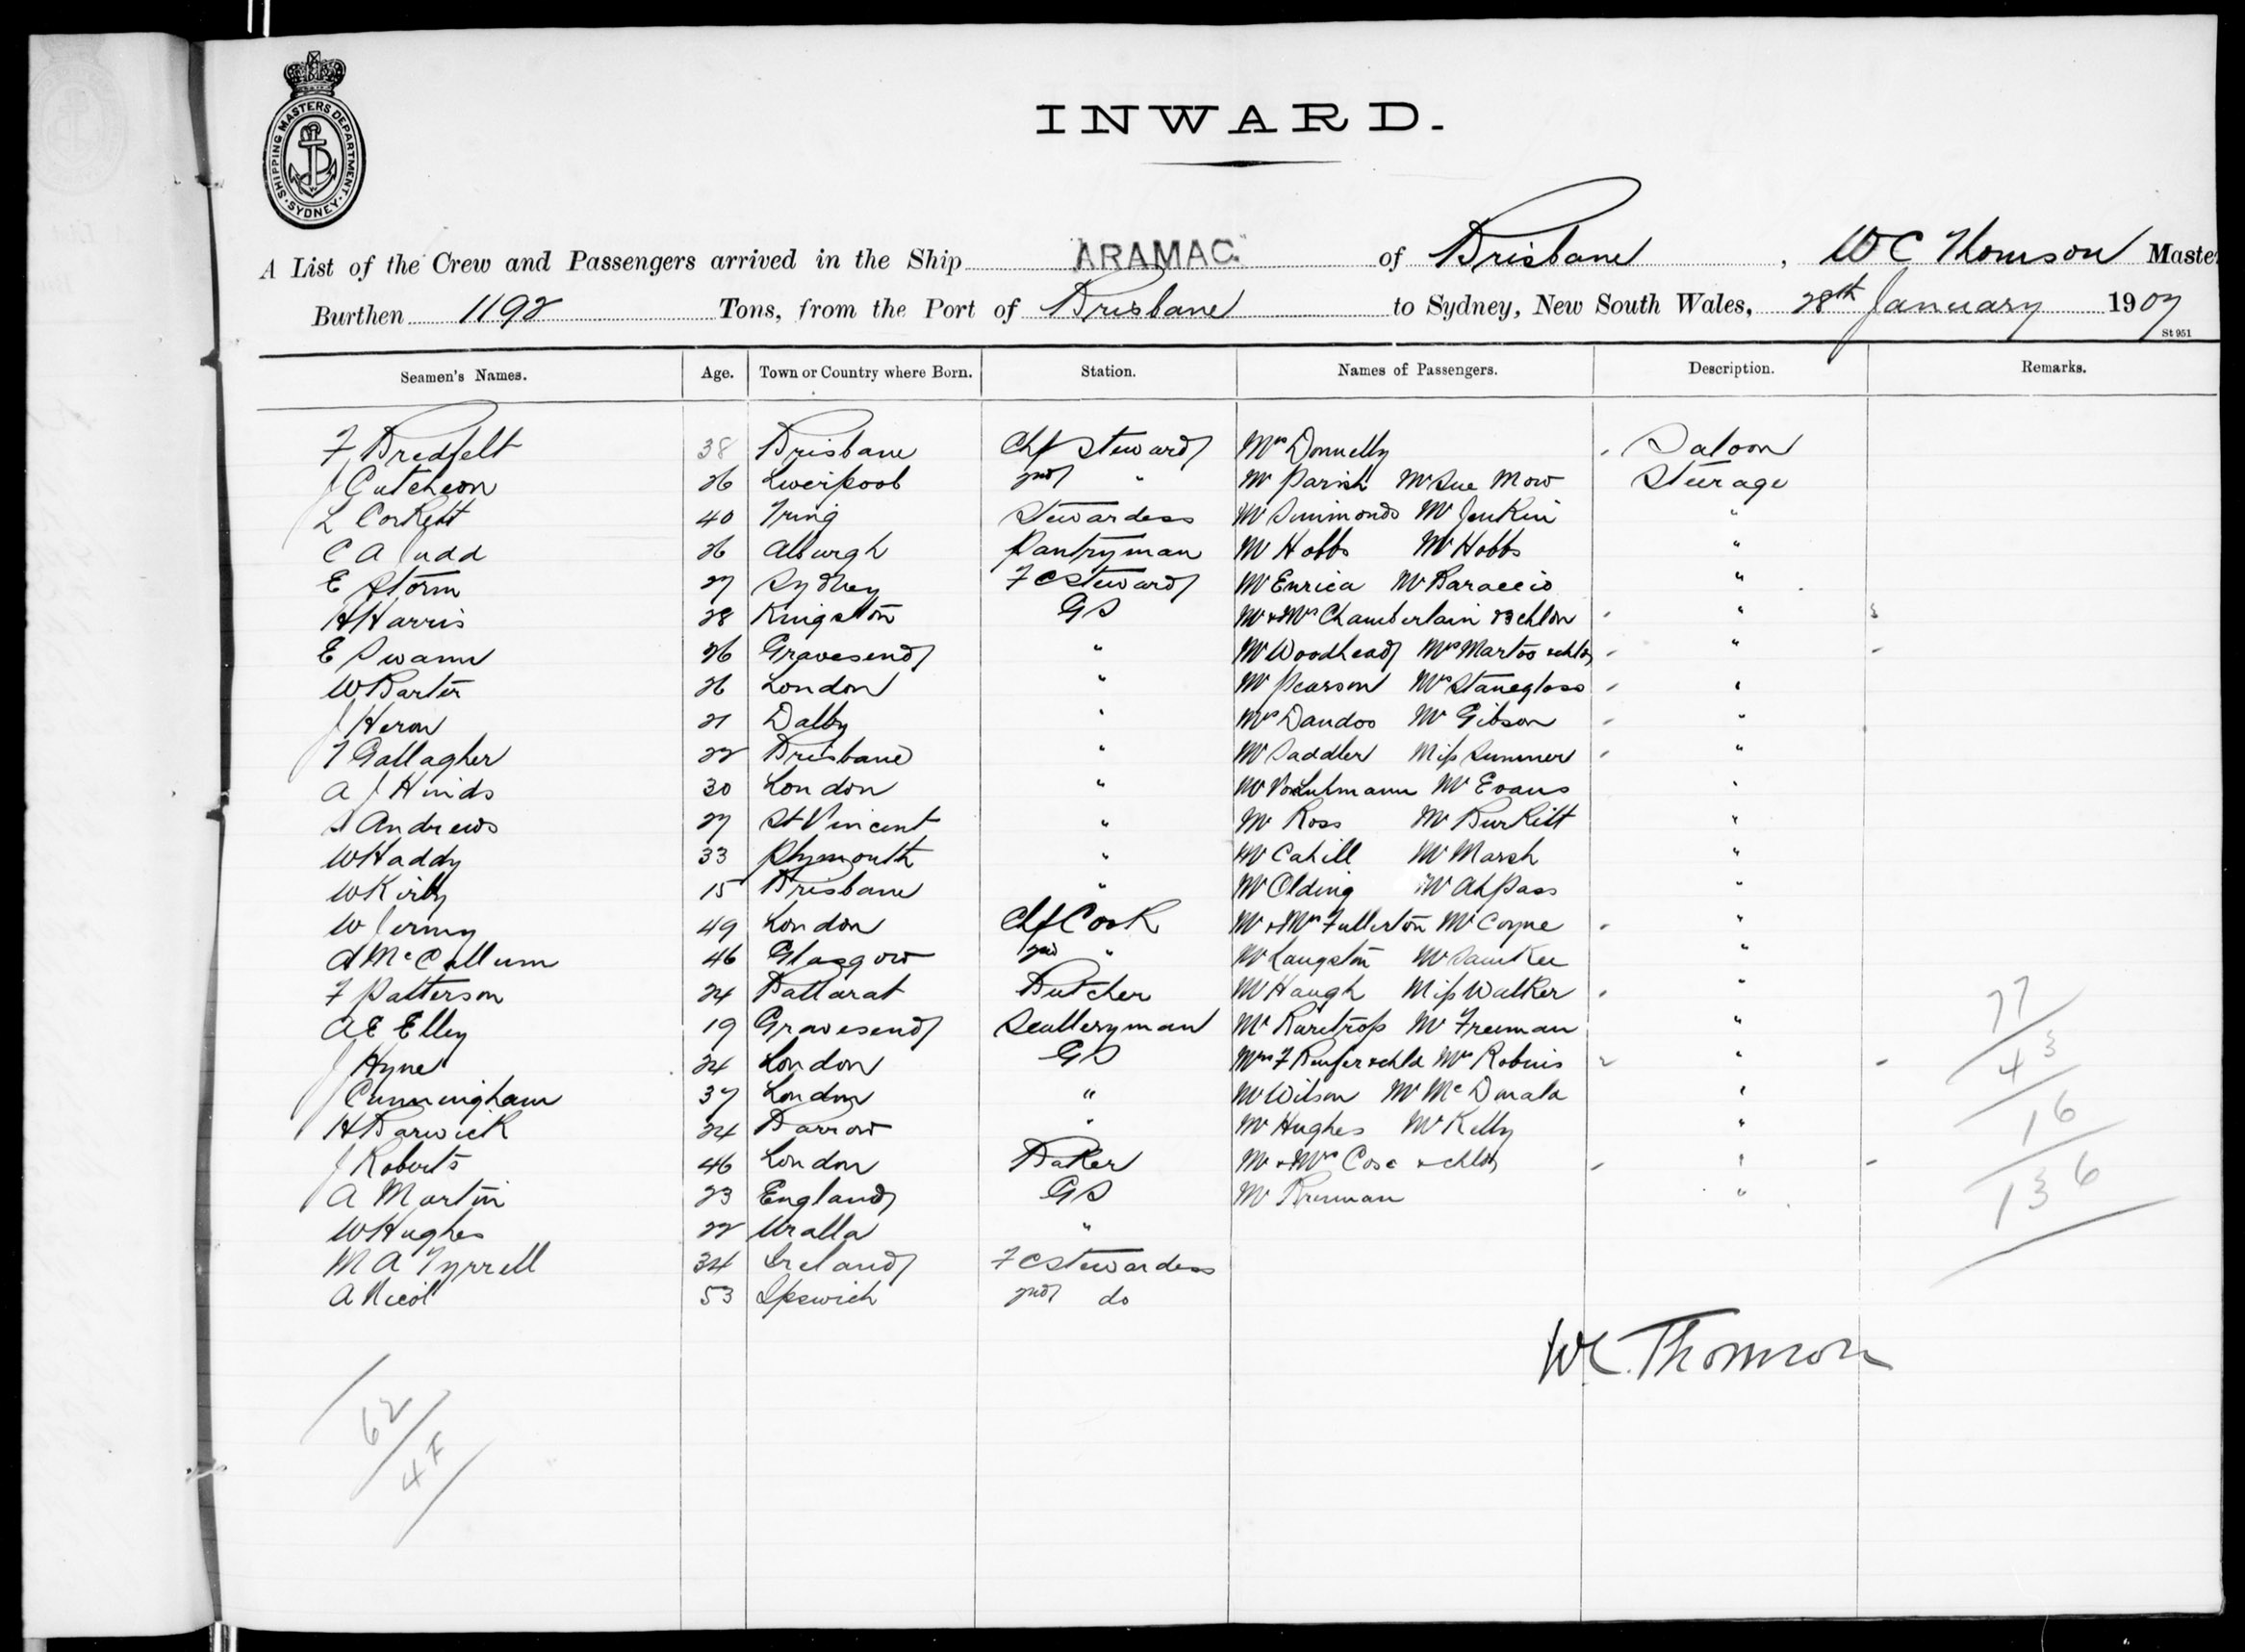 SHIPPING MASTERS DEPARTMENT · SYDNEY ·
INWARD.
A List of the Crew and Passengers arrived in the Ship ARAMAC of Brisbane, W C Thomson Master
Burthen 1192 Tons, from the Port of Brisbane to Sydney, New South Wales, 28th January 1907
St 951
Seamen's Names. Age. Town or Country where Born. Station. Names of Passengers. Description. Remarks.
F Bredfelt 38 Brisbane Chf Steward Mrs Donnelly Saloon
J Cutcheon 26 Liverpool 2nd " Mr Parish Mr Sue Mow Steerage
L Corkett 40 Tring Stewardess Mr Simmonds Mr Jenkin "
C A Judd 26 Alburgh Pantryman Mr Hobbs Mr Hobbs "
E Storm 27 Sydney F C Steward Mr Enrica Mr Baraccio "
H Harris 28 Kingston G S Mr & Mrs Chamberlain & 3 chldn " 3
E Swann 26 Gravesend " Mr Woodhead Mrs Martoo & chld "
W Barter 26 London " Mr Pearson Mrs "
J Heron 21 Dalby " Mrs Dandoo Mr Gibson "
T Gallagher 22 Brisbane " Mr Saddler Miss Sumner "
A J Hinds 30 London " Mr Mr Evans "
S Andrews 27 St Vincent " Mr Ross Mr Burkitt "
W Haddy 33 Plymouth " Mr Cahill Mr Marsh "
W Kirby 15 Brisbane " Mr Olding Mr Ah Pass "
W Jermy 49 London Chf Cook Mr & Mrs Fullerton Mr Coyne "
A McCallum 46 Glasgow 2nd " Mr Langston Mr Sam Kee "
F Patterson 24 Ballarat Butcher Mr Haugh Miss Walker "
A E Elley 19 Gravesend Sculleryman Mr Mr Freeman "
J Hyne 24 London G S Mrs F & chld Mrs Robins "
J Cunningham 37 London " Mr Wilson Mr McDonald "
H Barwick 24 Barrow " Mr Hughes Mr Kelly "
J Roberts 46 London Baker Mr & Mrs Cose & chld "
A Martin 23 England G S Mr "
W Hughes 22 Uralla "
M A Tyrrell 34 Ireland F C Stewardess
A Nicol 53 Ipswich 2nd do
77
43
16
136
W.C. Thomson
62
4 F